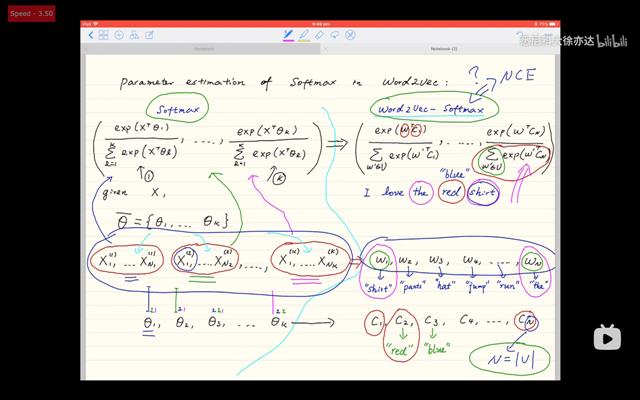 Speed - 3.50
iPad
9:49 pm
75%
Notebook
Notebook (2)
悉尼科大徐亦达 bilibili
Parameter estimation of Softmax in Word2Vec :
? NCE
Softmax
Word2Vec - Softmax
( exp(XᵀΘ₁) / Σ_{ℓ=1}^{K} exp(XᵀΘℓ) , ...., exp(XᵀΘ_K) / Σ_{ℓ=1}^{K} exp(XᵀΘℓ) ) ⇒ ( exp(WᵀC₁) / Σ_{W'∈U} exp(W'ᵀC₁) , ...., exp(WᵀC_N) / Σ_{W'∈U} exp(W'ᵀC_N) )
① Ⓚ
"blue"
given X,
I love the red shirt
Θ = {Θ₁, ... Θ_K}
X₁⁽¹⁾, .... X_{N₁}⁽¹⁾ X₁⁽²⁾, .... X_{N₂}⁽²⁾, ...., X₁⁽ᴷ⁾, .... X_{N_K}⁽ᴷ⁾ ⇒ W₁, W₂, W₃, W₄, ...., W_N
"shirt" "pants" "hat" "jump" "run" "the"
Θ₁, Θ₂, Θ₃, ... Θ_K → C₁, C₂, C₃, C₄, ...., C_N
"red" "blue"
N = |U|